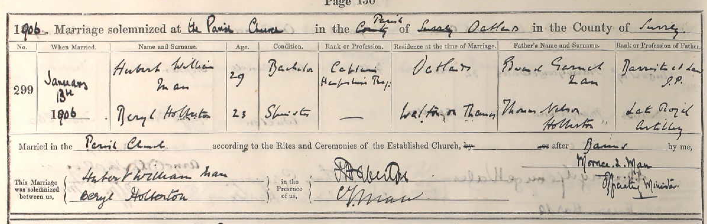 Page 130
1906. Marriage solemnized at the Parish Church in the Parish County of Surrey Oatlands in the County of Surrey
No. When Married. Name and Surname. Age. Condition. Rank or Profession. Residence at the time of Marriage. Father's Name and Surname. Rank or Profession of Father.
299 January 13th 1906 Hubert William Man 29 Bachelor Captain Hampshire Regt. Oatlands Garnet Man Barrister at Law J.P.
Beryl Holberton 23 Spinster — Walton on Thames Thomas Nelson Holberton Late Royal Artillery
Married in the Parish Church according to the Rites and Ceremonies of the Established Church, by or after Banns by me,
Morrice L. Man
Officiating Minister
This Marriage was solemnized between us, Hubert William Man
Beryl Holberton
in the Presence of us,